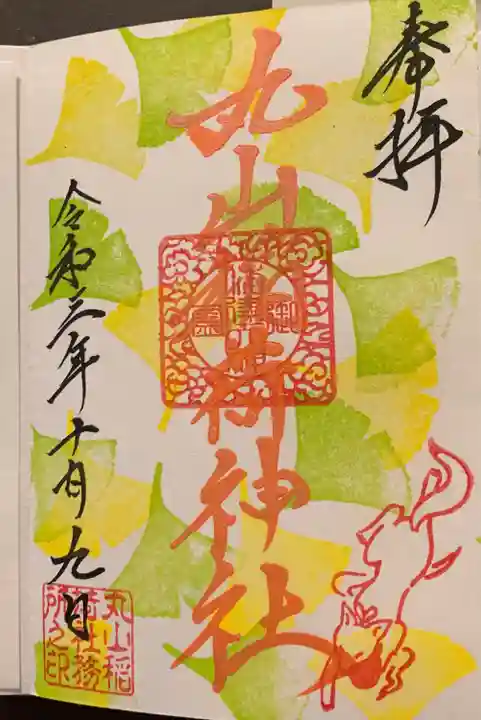 奉拝
丸山稲荷神社
令和三年十月九日
丸山稲
荷社務
所之印